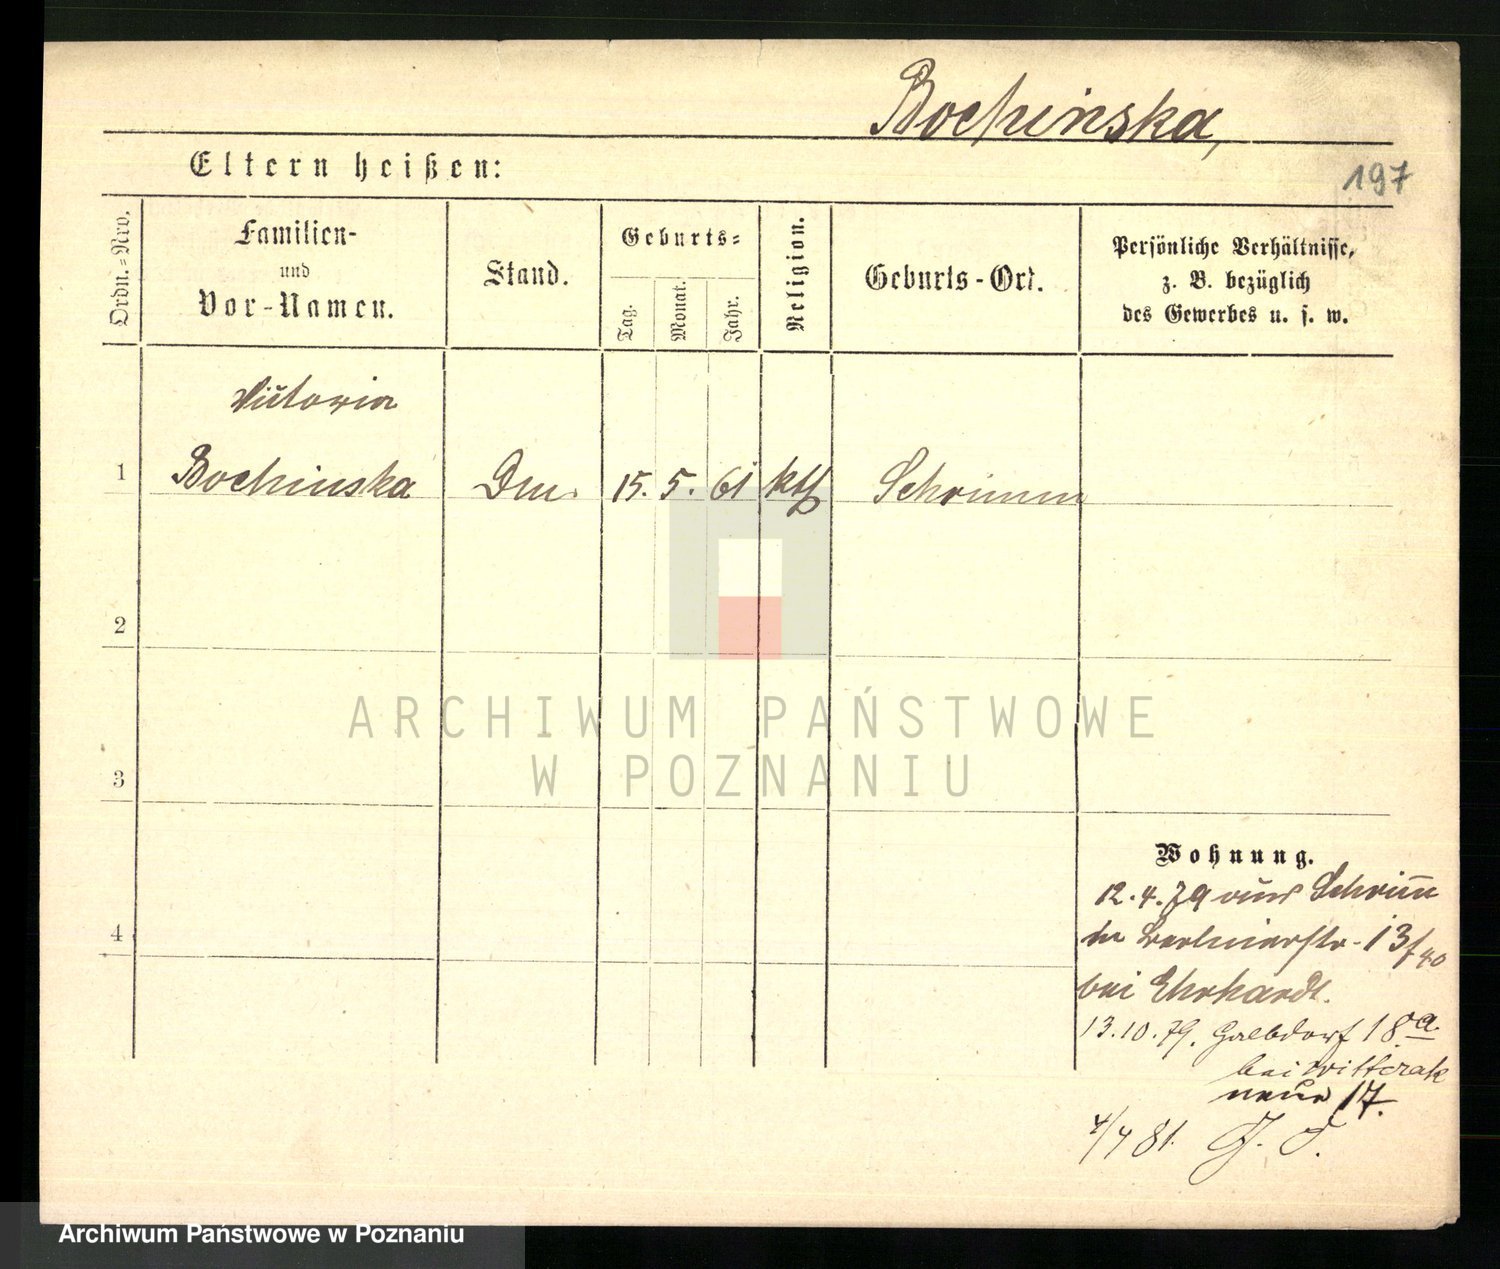 Bochinska,
197
Eltern heißen:
Ordn.-Nro.
Familien-
und
Vor-Namen.
Stand.
Geburts-
Tag.
Monat.
Jahr.
Religion.
Geburts-Ort.
Persönliche Verhältnisse,
z. B. bezüglich
des Gewerbes u. s. w.
Victoria
1 Bochinska 15. 5. 61 kth Schrimm
2
ARCHIWUM PAŃSTWOWE
W POZNANIU
3
Wohnung.
12.4.79 aus Schrimm
4 Berlinerstr. 13/40
bei Ehrhardt.
13.10.79. Halbdorf 18a
bei Witterak
neue 17.
4/4 81.
Archiwum Państwowe w Poznaniu